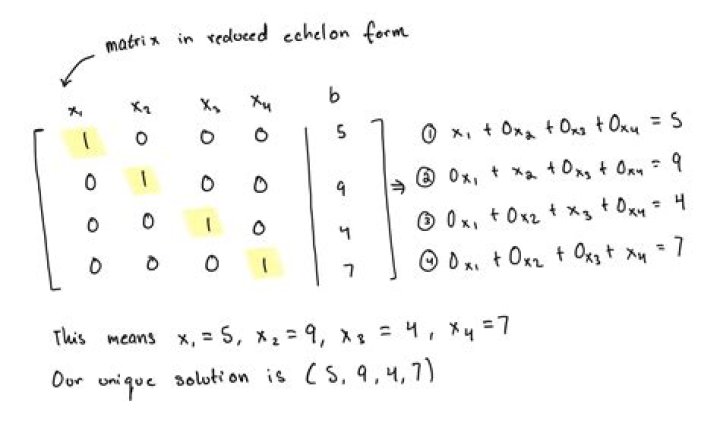 matrix in reduced echelon form
x₁ x₂ x₃ x₄ b
1 0 0 0 5 ① x₁ + 0x₂ + 0x₃ + 0x₄ = 5
0 1 0 0 9 ⇒ ② 0x₁ + x₂ + 0x₃ + 0x₄ = 9
0 0 1 0 4 ③ 0x₁ + 0x₂ + x₃ + 0x₄ = 4
0 0 0 1 7 ④ 0x₁ + 0x₂ + 0x₃ + x₄ = 7
This means x₁ = 5, x₂ = 9, x₃ = 4, x₄ = 7
Our unique solution is (5, 9, 4, 7)